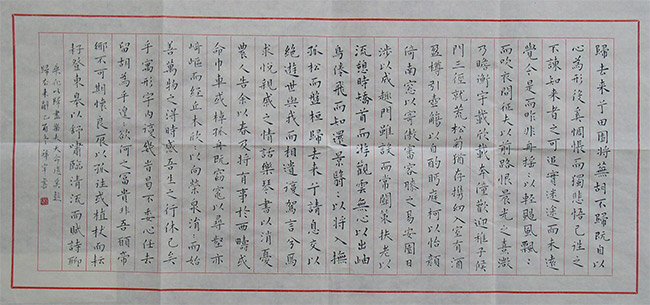 歸去來兮田園將蕪胡不歸既自以
心為形役奚惆悵而獨悲悟已往之
不諫知來者之可追實迷途而未遠
覺今是而昨非舟搖:以輕颺風飄:
而吹衣問征夫以前路恨晨光之熹微
乃瞻衡宇載欣載奔僮僕歡迎稚子候
門三徑就荒松菊猶存攜幼入室有酒
盈樽引壺觴以自酌眄庭柯以怡顏
倚南窗以寄傲審容膝之易安園日
涉以成趣門雖設而常關策扶老以
流憩時矯首而遐觀雲無心以出岫
鳥倦飛而知還景翳:以將入撫
孤松而盤桓歸去來兮請息交以
絕遊世與我而相遺復駕言兮焉
求悅親戚之情話樂琴書以消憂
農人告余以春及將有事於西疇或
命巾車或棹孤舟既窈窕以尋壑亦
崎嶇而經丘木欣:以向榮泉涓:而始
善萬物之得時感吾生之行休已矣
乎寓形宇內復幾時曷不委心任去
留胡為乎遑:欲何之富貴非吾願帝
鄉不可期懷良辰以孤往或植杖而耘
耔登東皋以舒嘯臨清流而賦詩聊
乘化以歸盡樂夫天命復奚疑
歸去來辭乙酉年